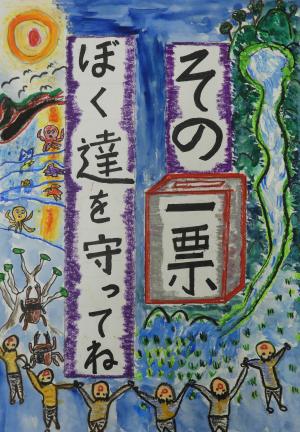 その一票
ぼく達を守ってね